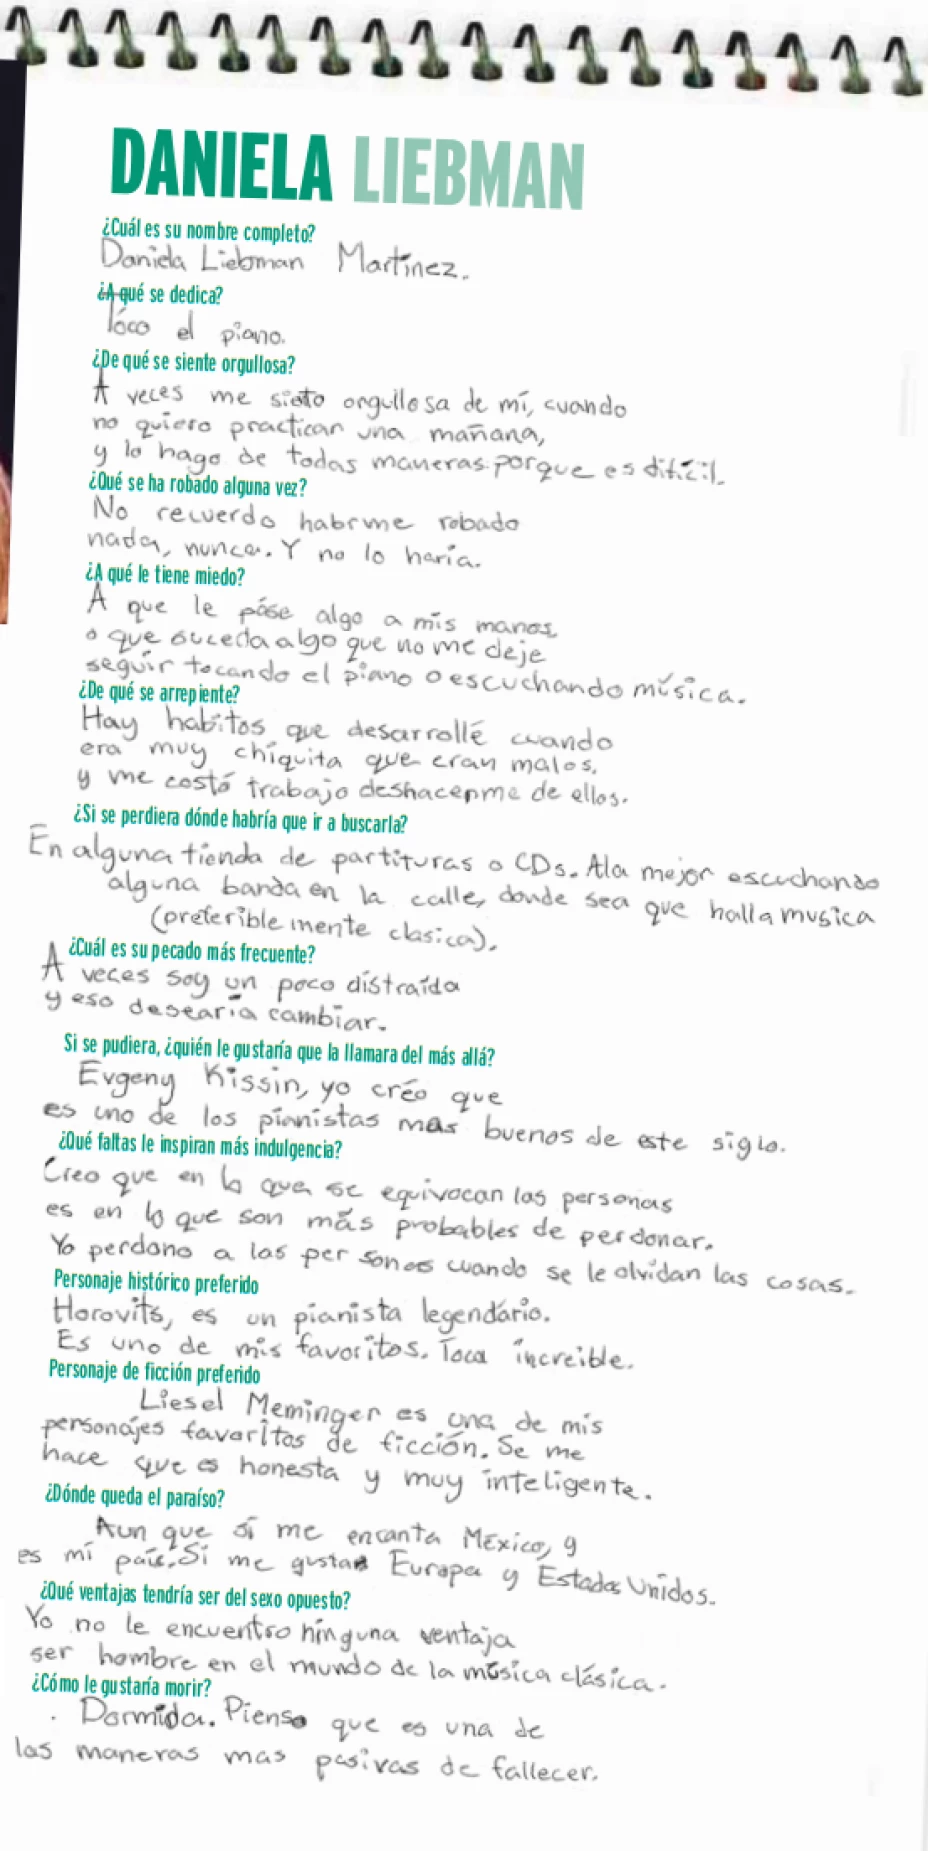 DANIELA LIEBMAN
¿Cuál es su nombre completo?
Daniela Liebman Martínez.
¿A qué se dedica?
Toco el piano.
¿De qué se siente orgullosa?
A veces me sieto orgullosa de mí, cuando
no quiero practicar una mañana,
y lo hago de todas maneras porque es difícil.
¿Qué se ha robado alguna vez?
No recuerdo habrme robado
nada, nunca. Y no lo haría.
¿A qué le tiene miedo?
A que le páse algo a mis manos,
o que suceda algo que no me deje
seguir tocando el piano o escuchando música.
¿De qué se arrepiente?
Hay habitos que desarrollé cuando
era muy chiquita que eran malos,
y me costó trabajo deshacerme de ellos.
¿Si se perdiera dónde habría que ir a buscarla?
En alguna tienda de partituras o CDs. Ala mejor escuchando
alguna banda en la calle, donde sea que halla musica
(preferible mente clasica).
¿Cuál es su pecado más frecuente?
A veces soy un poco distraída
y eso desearía cambiar.
Si se pudiera, ¿quién le gustaría que la llamara del más allá?
Evgeny Kissin, yo créo que
es uno de los pianistas mas buenos de este siglo.
¿Qué faltas le inspiran más indulgencia?
Creo que en lo que se equivocan las personas
es en lo que son más probables de perdonar.
Yo perdono a las per sonas cuando se le olvidan las cosas.
Personaje histórico preferido
Horovits, es un pianista legendário.
Es uno de mis favoritos. Toca increible.
Personaje de ficción preferido
Liesel Meminger es una de mis
personájes favoritos de ficción. Se me
hace que es honesta y muy inteligente.
¿Dónde queda el paraíso?
Aun que sí me encanta México, y
es mi país. Sí me gustan Europa y Estados Unidos.
¿Qué ventajas tendría ser del sexo opuesto?
Yo no le encuentro ninguna ventaja
ser hombre en el mundo de la música clásica.
¿Cómo le gustaría morir?
Dormida. Pienso que es una de
las maneras mas pasivas de fallecer.